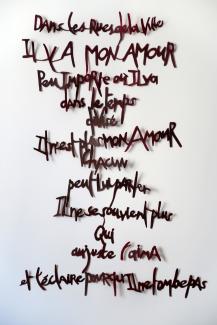 Dans les Rues de la Ville
Il y a MON AMOUR
Peu importe où Il va
dans le temps
divisé
Il n'est plus MON AMOUR
chacun
peut lui parler
Il ne se souvient plus
Qui
au juste l'aimA
et l'éclaire pour qu'Il ne tombe pas